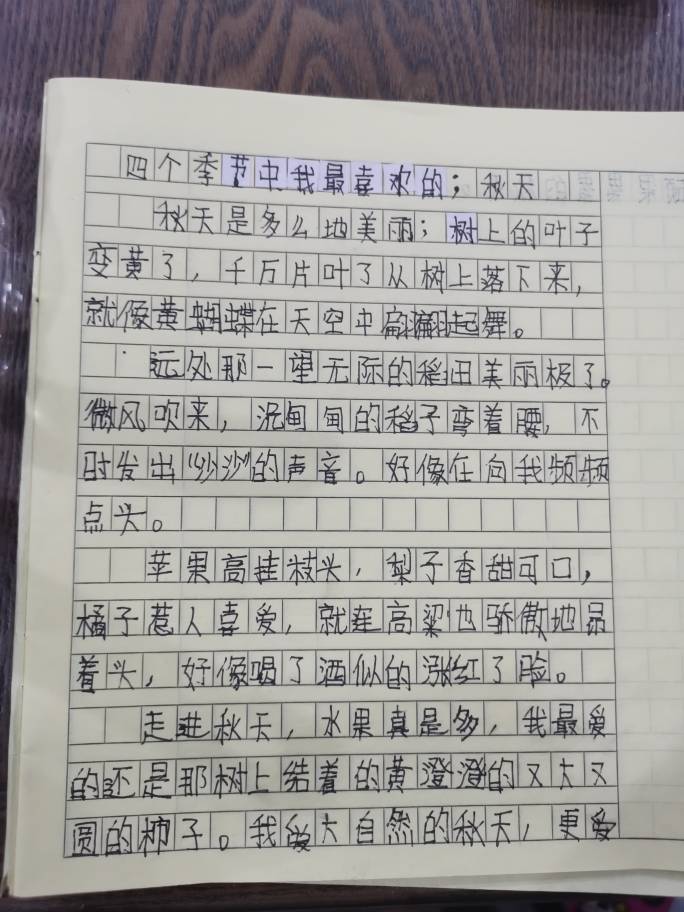 四个季节中我最喜欢的；秋天
秋天是多么地美丽；树上的叶子
变黄了，千万片叶了从树上落下来，
就像黄蝴蝶在天空中翩翩起舞。
远处那一望无际的稻田美丽极了。
微风吹来，沉甸甸的稻子弯着腰，不
时发出“沙沙”的声音。好像在向我频频
点头。
苹果高挂枝头，梨子香甜可口，
橘子惹人喜爱，就连高粱也骄傲地昂
着头，好像喝了酒似的涨红了脸。
走进秋天，水果真是多，我最爱
的还是那树上结着的黄澄澄的又大又
圆的柿子。我爱大自然的秋天，更爱